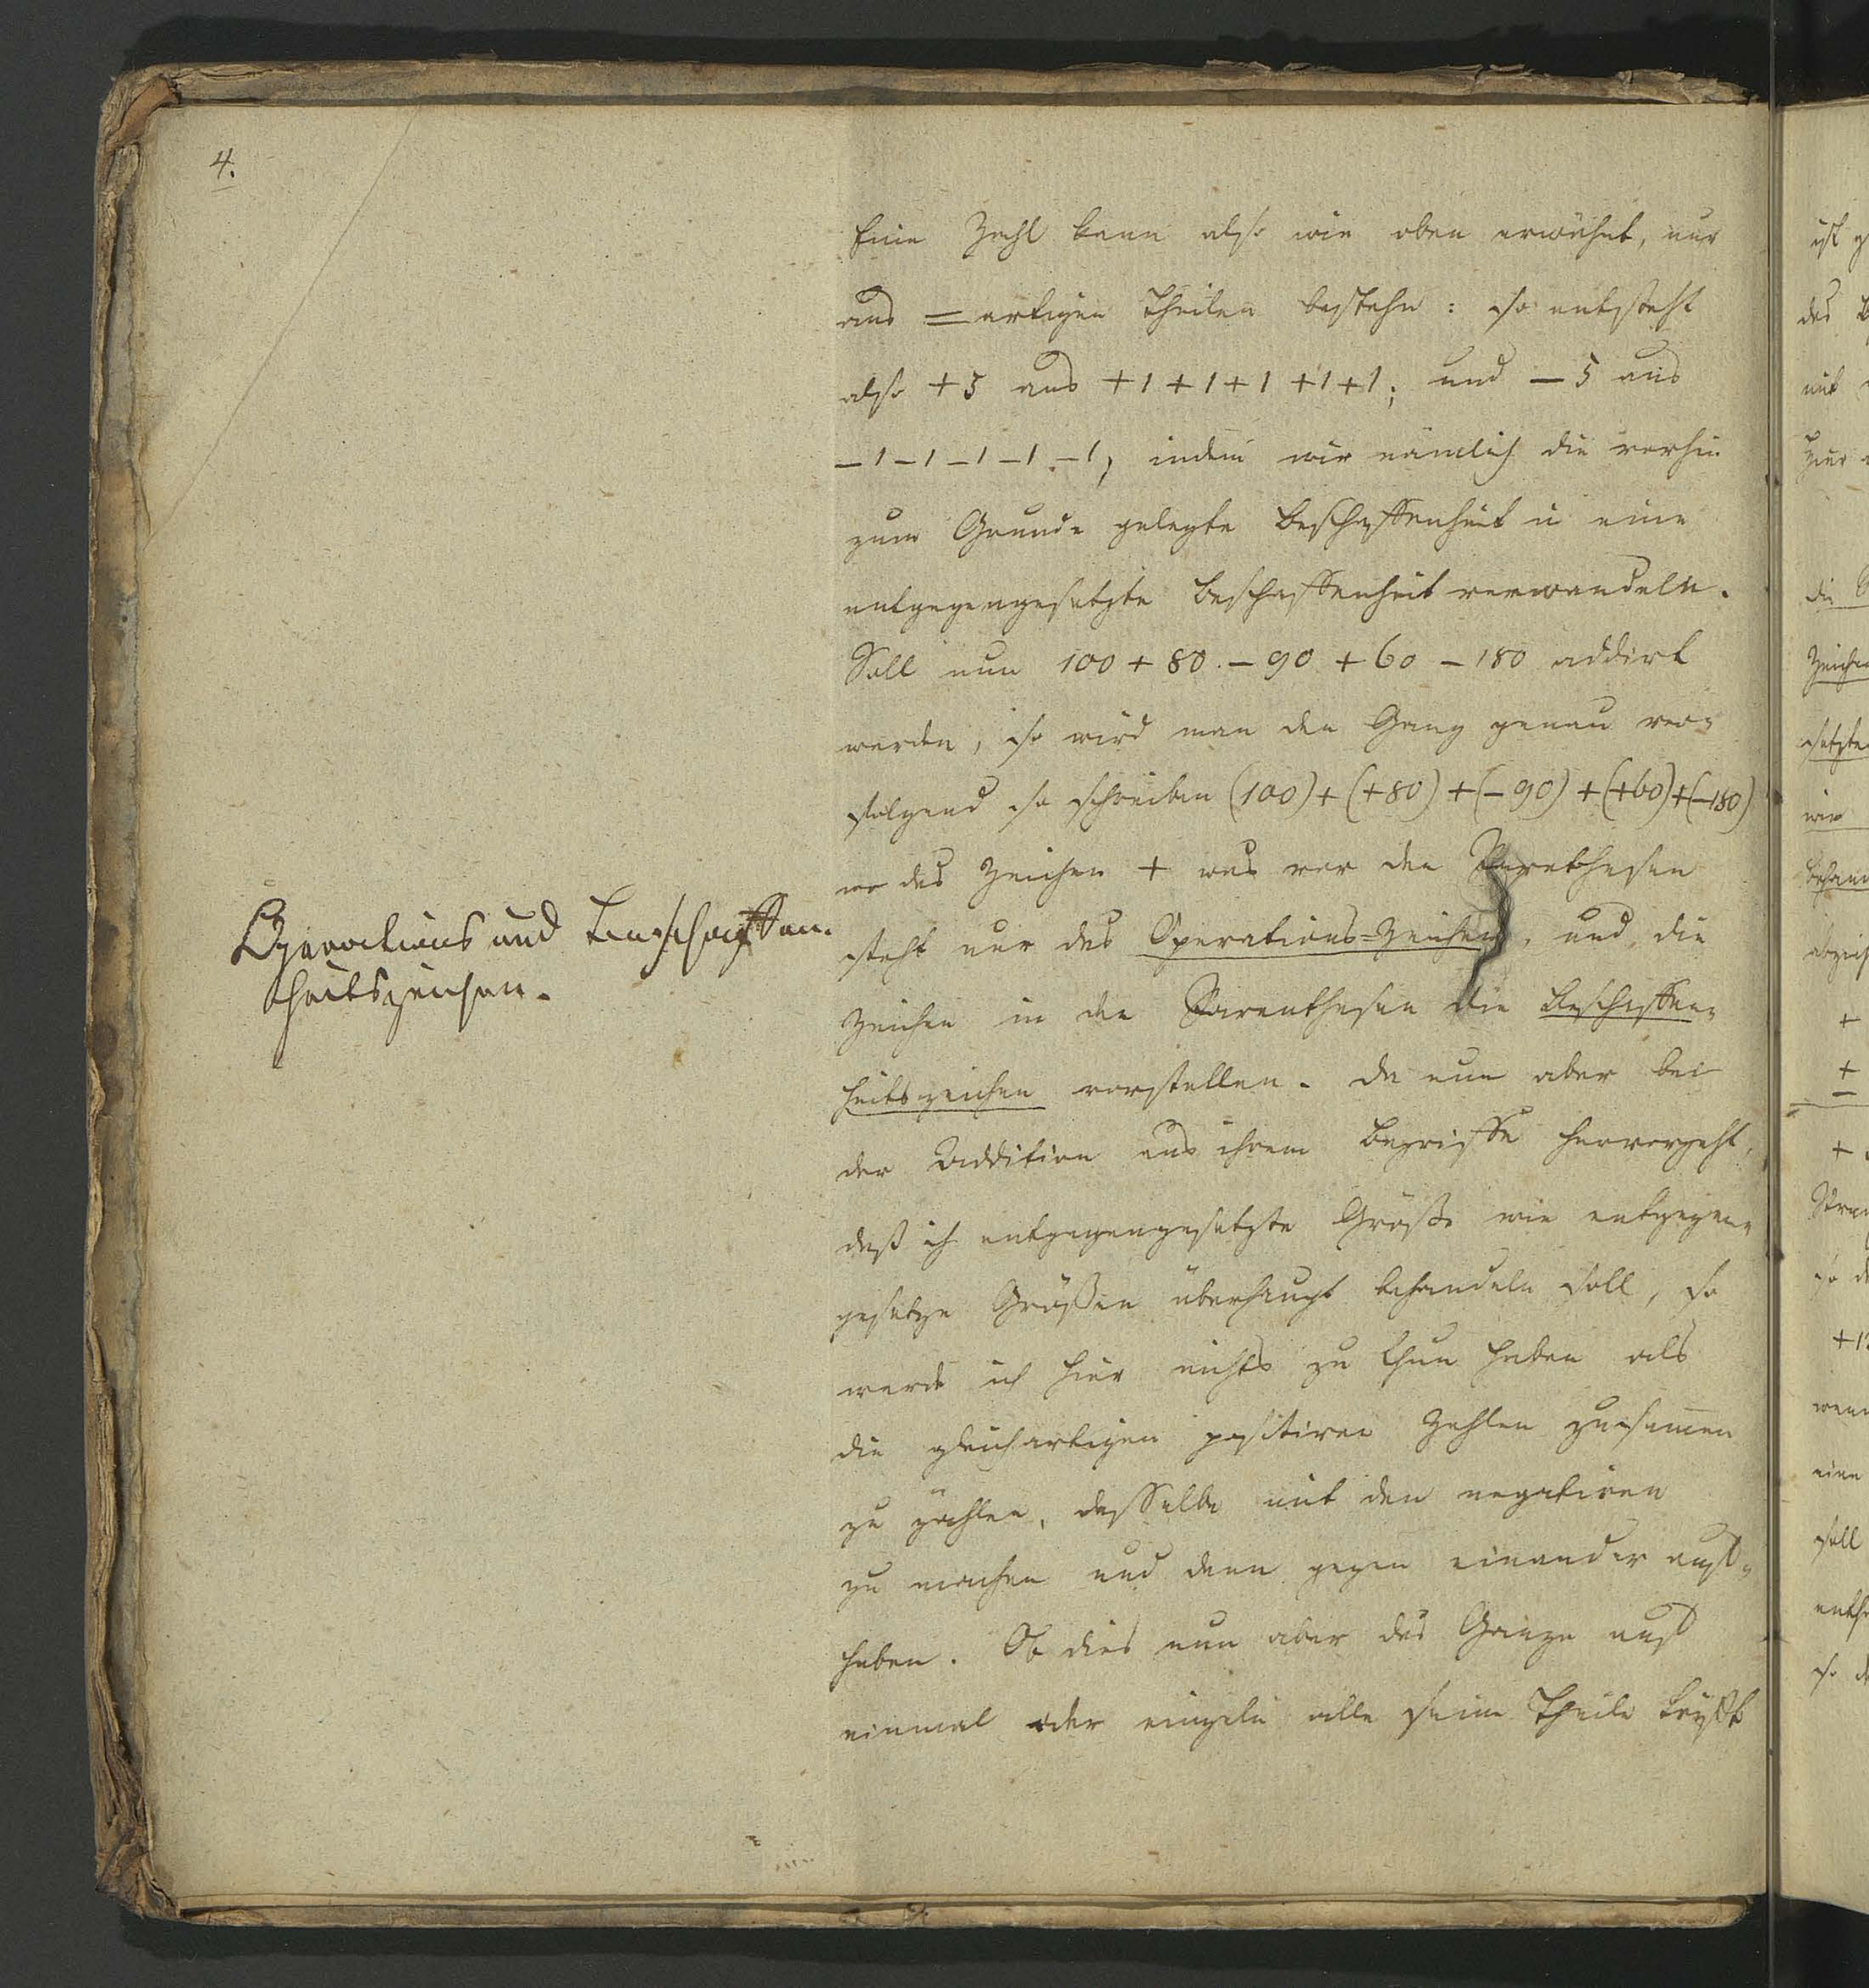 4.
Eine Zahl kann also wie oben erwähnt, nur
aus = artigen Theilen bestehn: so entsteht
also +5 aus +1+1+1+1+1; und -5 aus
-1-1-1-1-1, indem wir nämlich die vorhin
zum Grunde gelegte Beschaffenheit in eine
entgegengesetzte Beschaffenheit verwandeln.
Soll nun 100 + 80 - 90 + 60 - 180 addirt
werden, so wird man den Gang genau ver-
folgend so schreiben (100)+(+80)+(-90)+(+60)+(-180)
wo das Zeichen + was vor den Parenthesen
steht nur das Operations=Zeichen, und die
Zeichen in den Parenthesen die Beschaffen-
heitszeichen vorstellen. Da nun aber bei
der Addition aus ihrem Begriffe hervorgeht,
daß ich entgegengesetzte Größe wie entgegen-
gesetzte Größen überhaupt behandeln soll, so
werde ich hier nichts zu thun haben als
die gleichartigen positiven Zahlen zusam̅en
zu zählen, dasselbe mit den negativen
zu machen und dann gegen einander auf-
heben. Ob dies nun aber das Ganze auf
einmal oder einzeln alle seine Theile trifft
Operations und Beschaffen-
heitszeichen.